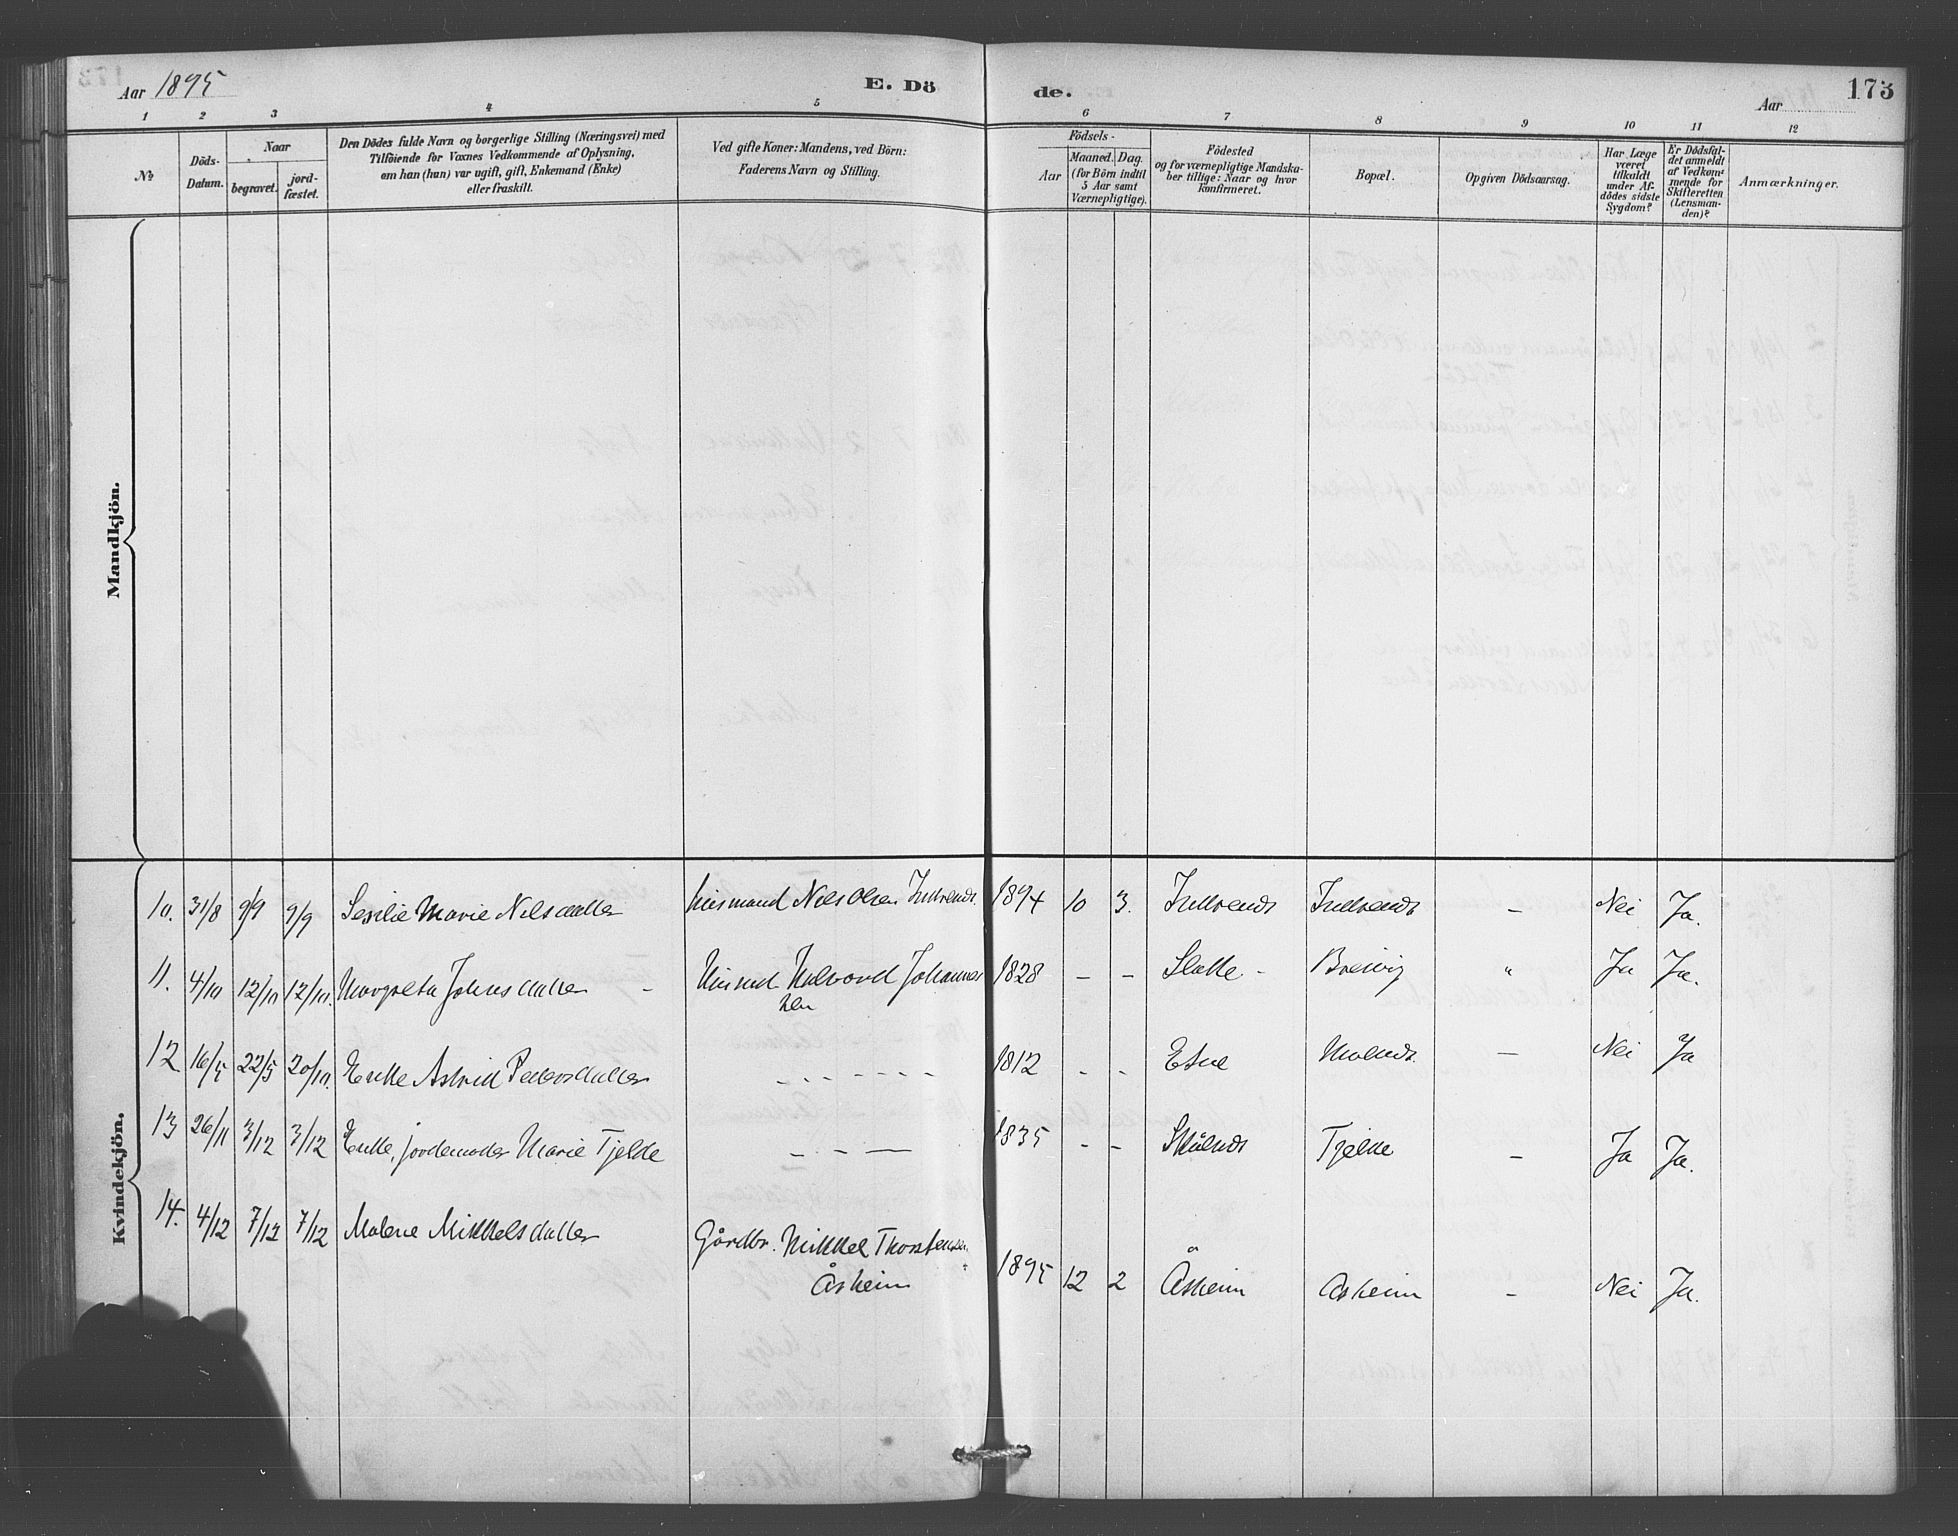 Aar 1895
E. Dö
de.
Aar
173
1 2 3 4 5 6 7 8 9 10 11 12
No
Döds-
Datum.
Naar
begravet.
jord-
fæstet.
Den Dödes fulde Navn og borgerlige Stilling (Næringsvei) med
Tilföiende for Voxnes Vedkommende af Oplysning,
om han (hun) var ugift, gift, Enkemand (Enke)
eller fraskilt.
Ved gifte Koner: Mandens, ved Börn:
Faderens Navn og Stilling.
Födsels-
Aar
Maaned. Dag.
(for Börn indtil
5 Aar samt
Værnepligtige).
Födested
og for værnepligtige Mandska-
ber tillige: Naar og hvor
konfirmeret.
Bopæl.
Opgiven Dödsaarsag.
Har Læge
været
tilkaldt
under Af-
dödes sidste
Sygdom?
Er Dödsfal-
det anmeldt
af Vedkom-
mende for
Skifteretten
(Lensman-
den)?
Anmærkninger.
Mandkjön.
Kvindekjön.
10. 31/8 9/9 9/9 Sesilie Marie Nilsdatter husmand Nils Olsen 1894 10 3. – Nei Ja.
11. 4/10 12/10 12/10. Margreta Johnsdatter – Halvord Johannes 1828 – – Slatte – Breivig " Ja Ja.
sen
12 16/5 22/5 20/10. Enke Astrid Pedersdatter – – – – – – 1812 – – Etne – Nei Ja
13 26/11 3/12 3/12 Enke, jordemoder Marie Tjelde – – – 1835 – – Tjelde – Ja Ja.
14. 4/12 7/12 7/12 Malene Mikkelsdatter Gårdbr. Mikkel Thorstensen
Åsheim 1895 12 2 Åsheim Åsheim – Nei Ja.